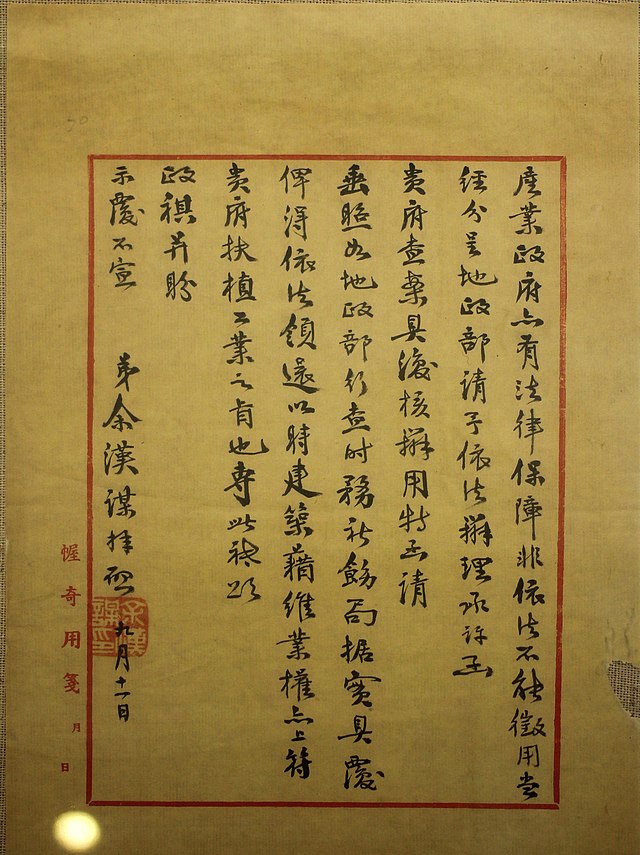 產業政府亦有法律保障非依法不能徵用當
經分呈地政部請予依法辦理承許函
貴府查案具復核辦用特函請
垂照如地政部行查时務祈飭局据實具覆
俾得依法領還以時建築藉維業權亦上符
貴府扶植工業之旨也專此祗頌
政祺并盼
示覆不宣
弟余漢謀拜啟
九月十一日
幄奇用箋
月
日